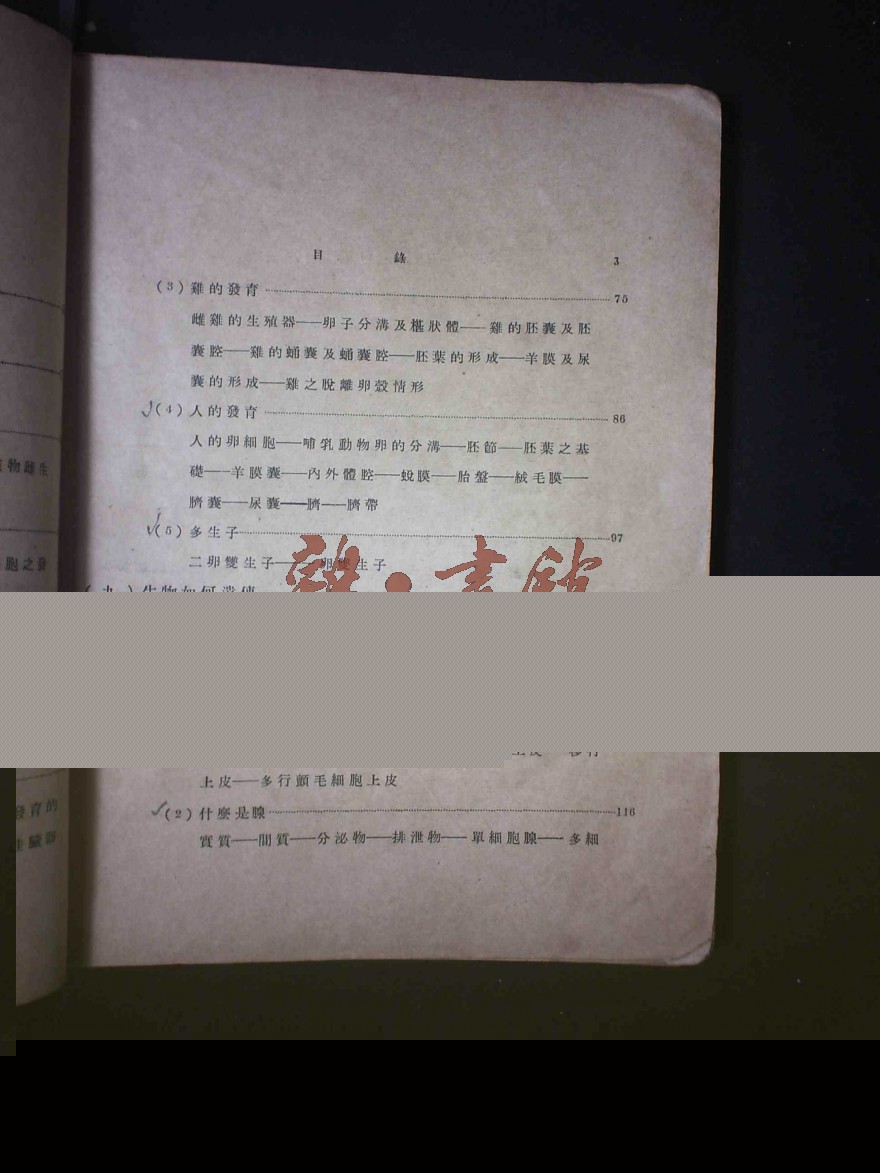 目 錄 3
(3)雞的發育 75
雌雞的生殖器——卵子分溝及椹狀體——雞的胚囊及胚
囊腔——雞的蛹囊及蛹囊腔——胚葉的形成——羊膜及尿
囊的形成——雞之脫離卵殼情形
(4)人的發育 86
人的卵細胞——哺乳動物卵的分溝——胚節——胚葉之基
礎——羊膜囊——內外體腔——蛻膜——胎盤——絨毛膜——
臍囊——尿囊——臍——臍帶
(5)多生子 97
二卵雙生子——卵雙生子
(九)生物如何遺傳
上皮——多行顫毛細胞上皮
(2)什麼是腺 116
實質——間質——分泌物——排泄物——單細胞腺——多細
物雌生
胞之發
發育的
臟器